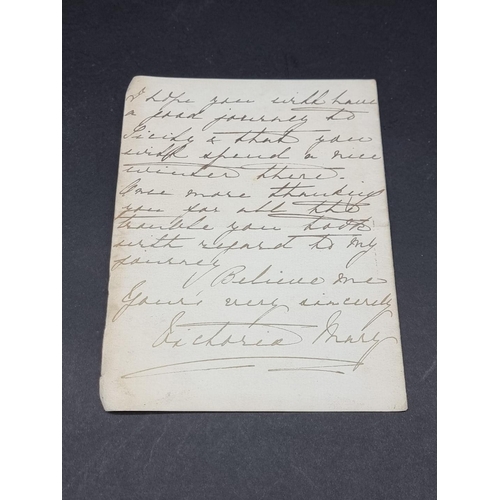 I hope you will have
a good journey to
Sicily & that you
will spend a nice
winter there.
Once more thanking
you for all the
trouble you took
with regard to my
journey
Believe me
Yours very sincerely
Victoria Mary